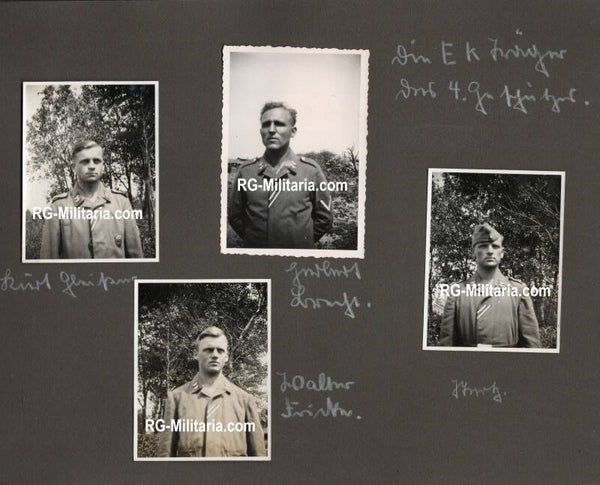 Die E K Träger
des 4. Geschützes.
RG-Militaria.com
RG-Militaria.com
RG-Militaria.com
Kurt
Herbert
Brecht.
RG-Militaria.com
Walter
Fricke.